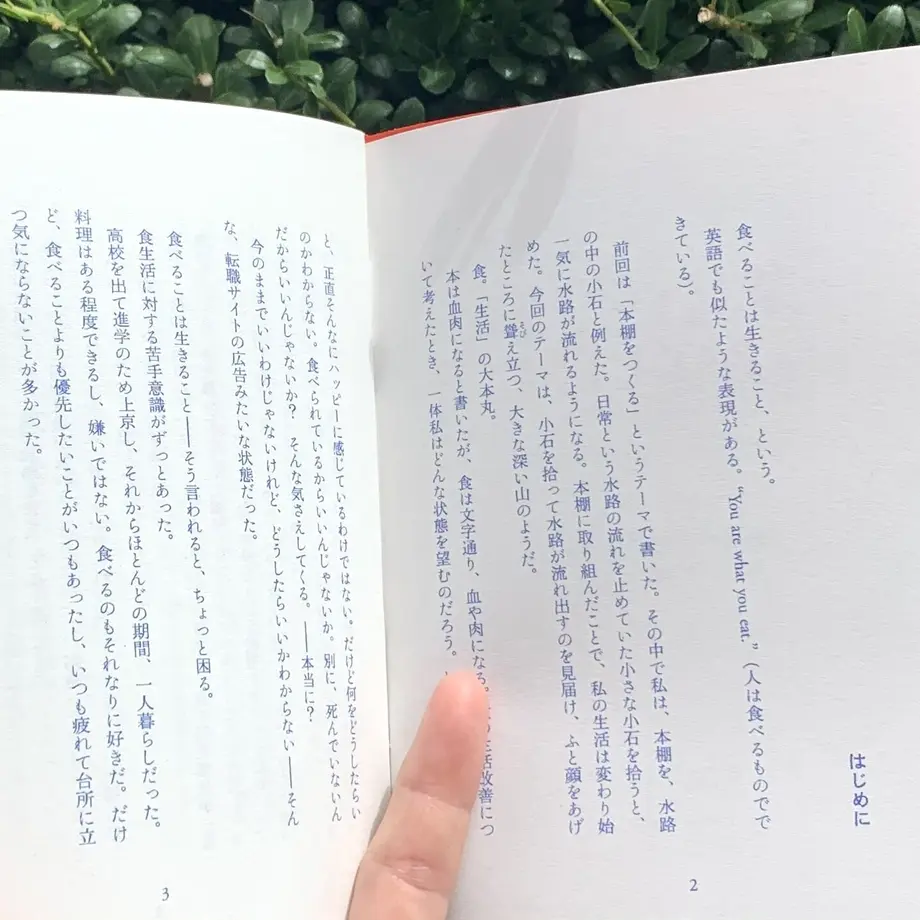 はじめに
食べることは生きること、という。
英語でも似たような表現がある。“You are what you eat.”（人は食べるものでで
きている）。
前回は「本棚をつくる」というテーマで書いた。その中で私は、本棚を、水路
の中の小石と例えた。日常という水路の流れを止めていた小さな小石を拾うと、
一気に水路が流れるようになる。本棚に取り組んだことで、私の生活は変わり始
めた。今回のテーマは、小石を拾って水路が流れ出すのを見届け、ふと顔をあげ
たところに聳え立つ、大きな深い山のようだ。
そび
食。「生活」の大本丸。
本は血肉になると書いたが、食は文字通り、血や肉になる。生活改善につ
いて考えたとき、一体私はどんな状態を望むのだろう。
2
と、正直そんなにハッピーに感じているわけではない。だけど何をどうしたらいい
のかわからない。食べられているからいいんじゃないか。別に、死んでいないん
だからいいんじゃないか？　そんな気さえしてくる。――本当に？
今のままでいいわけじゃないけれど、どうしたらいいかわからない――そん
な、転職サイトの広告みたいな状態だった。
食べることは生きること――そう言われると、ちょっと困る。
食生活に対する苦手意識がずっとあった。
高校を出て進学のため上京し、それからほとんどの期間、一人暮らしだった。
料理はある程度できるし、嫌いではない。食べるのもそれなりに好きだ。だけ
ど、食べることよりも優先したいことがいつもあったし、いつも疲れて台所に立
つ気にならないことが多かった。
3